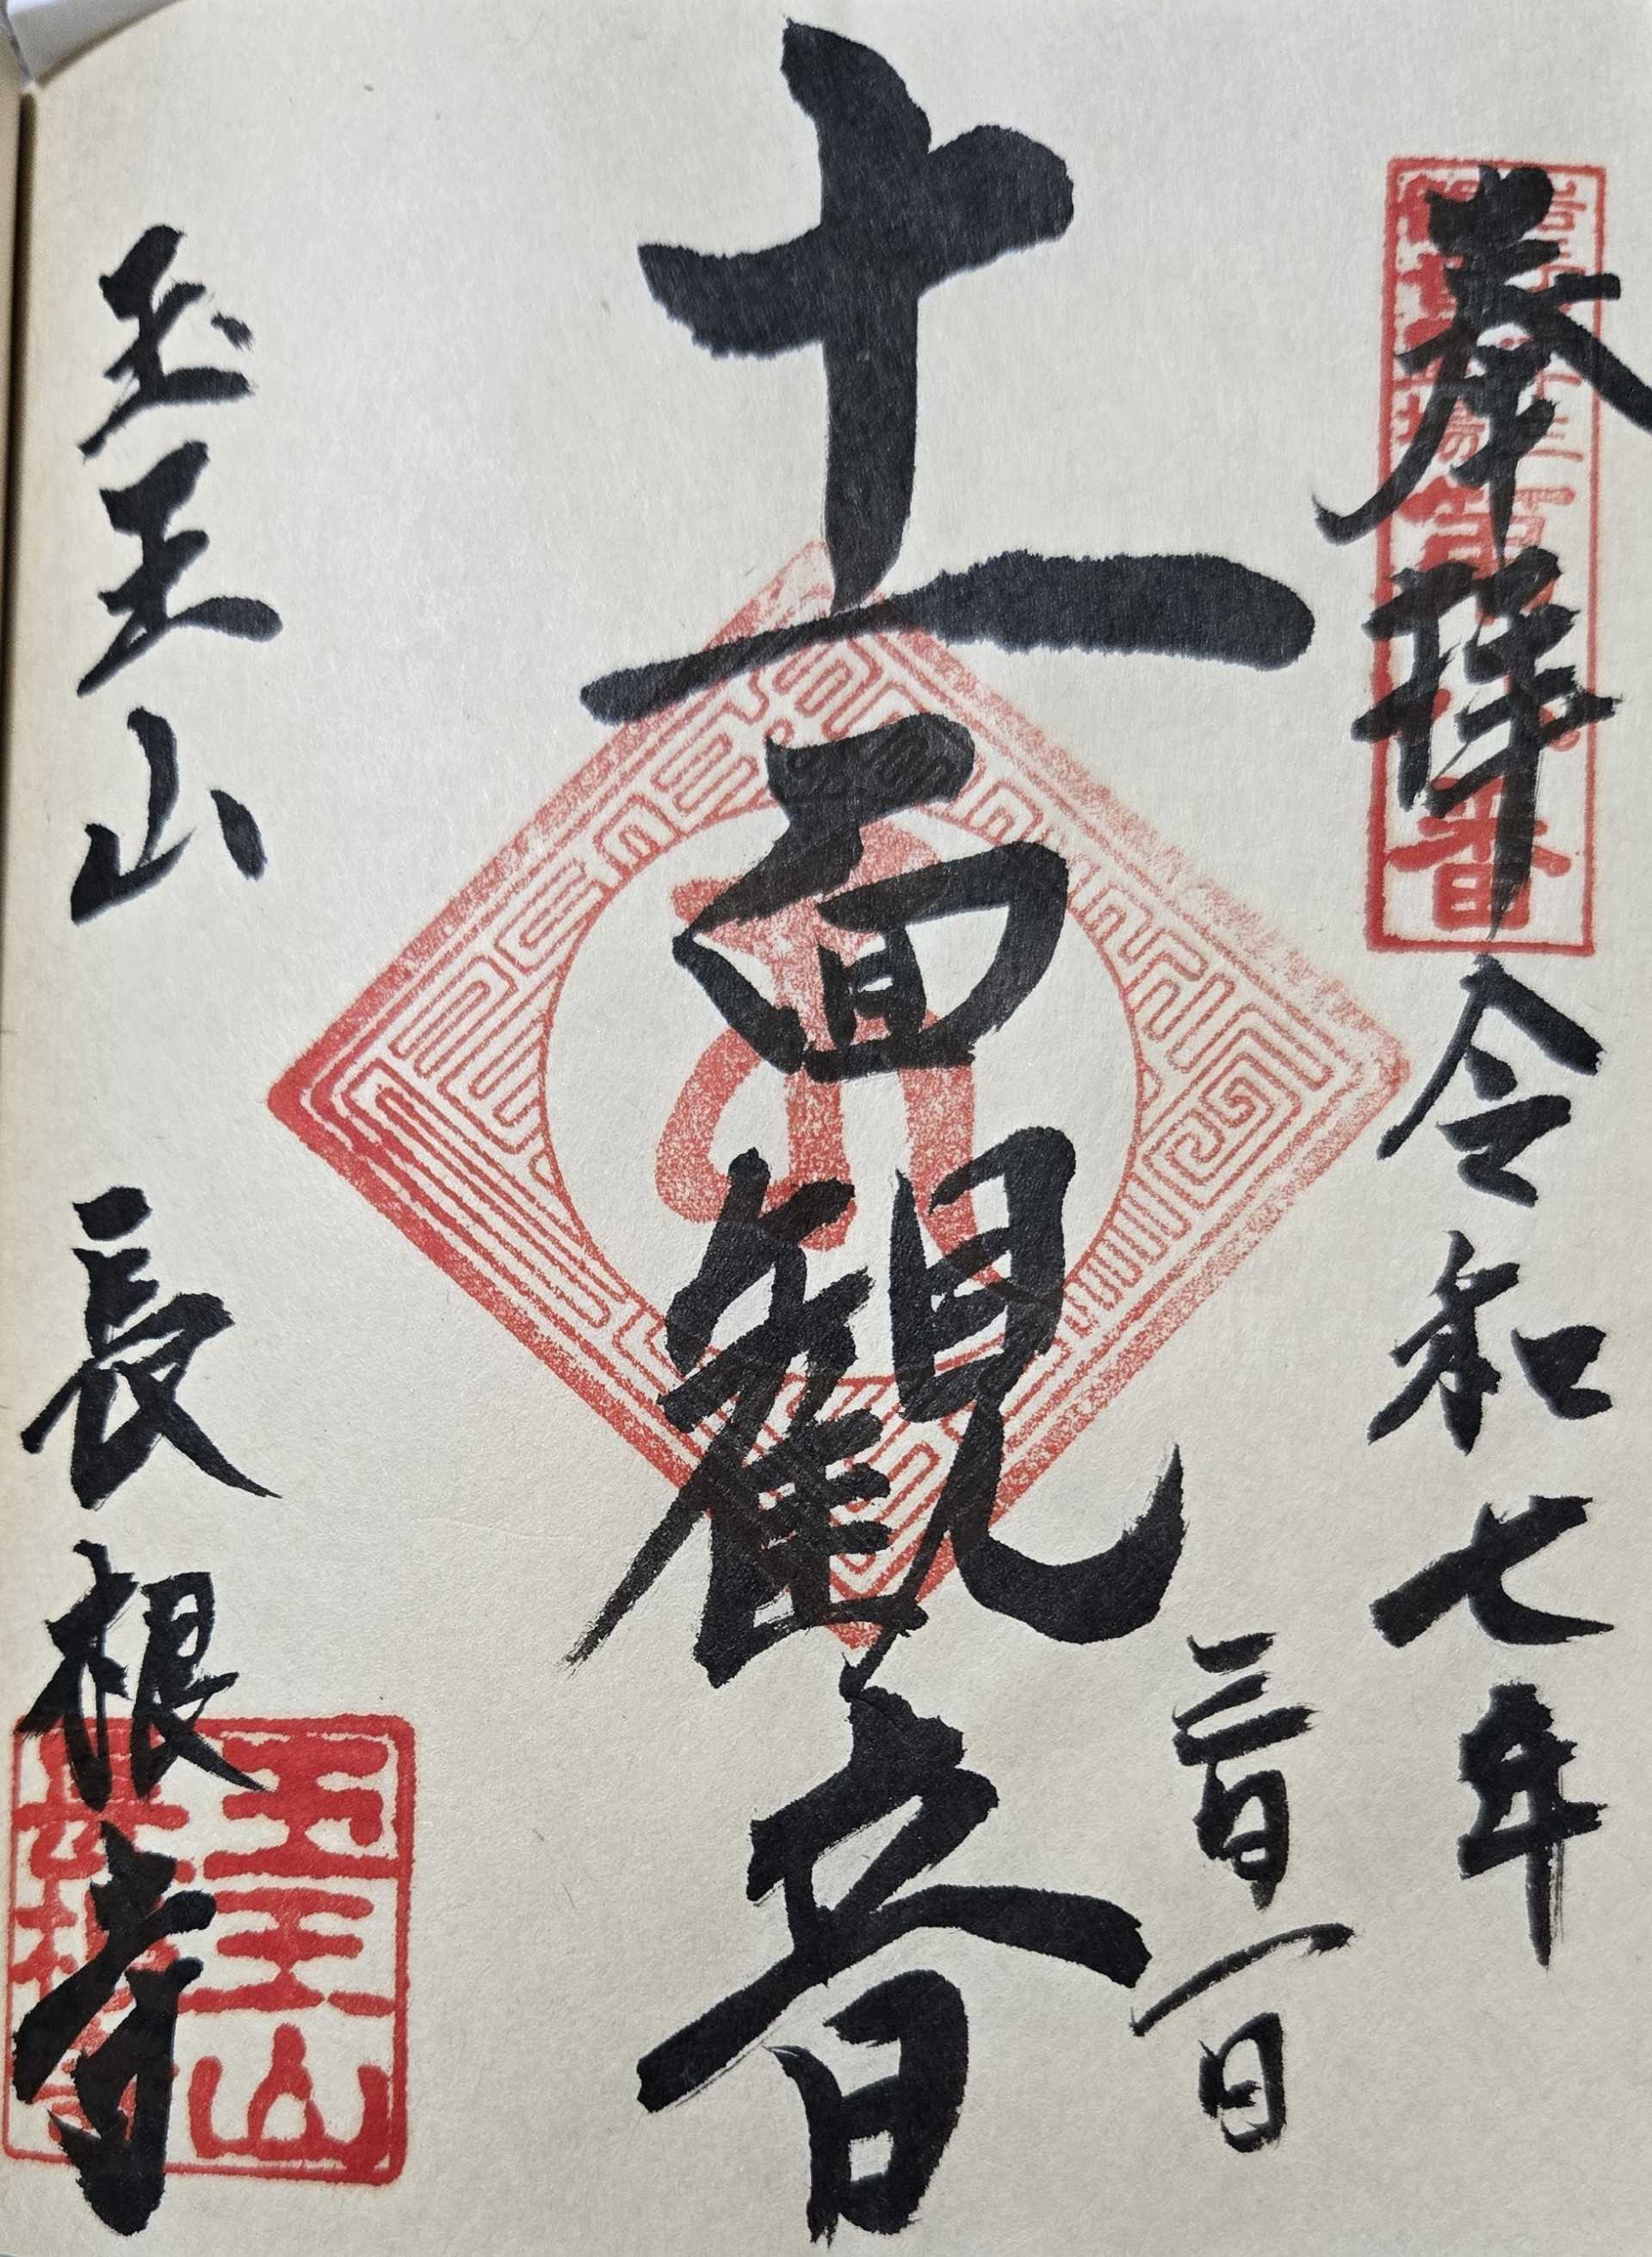 奉拝 令和七年
三月一日
十一面観音
玉王山 長根寺
玉王山
長根寺